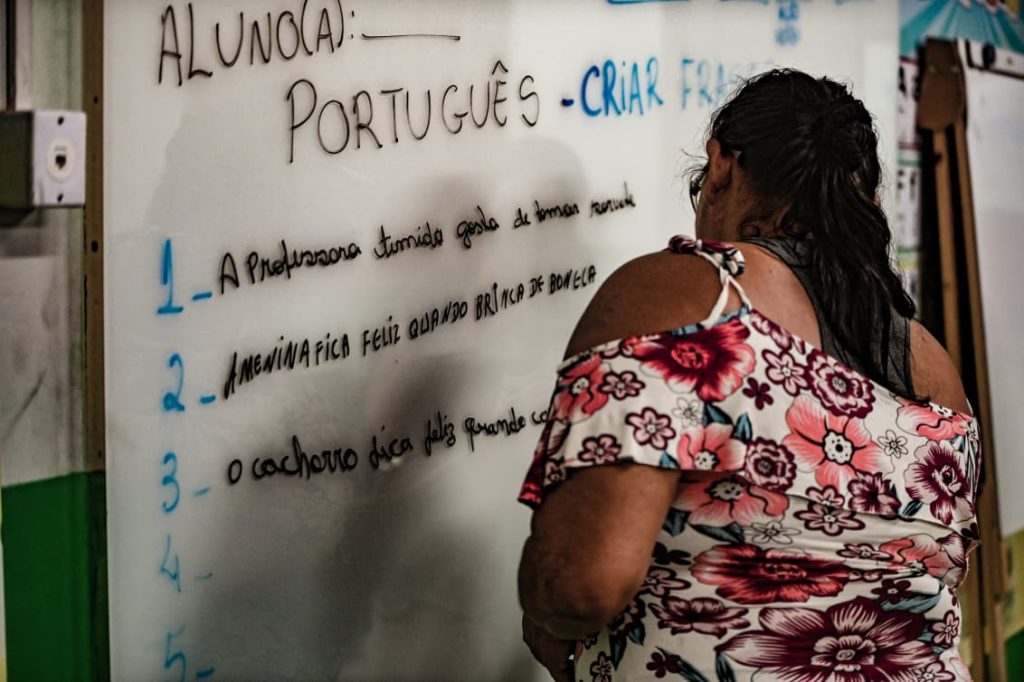 ALUNO(A): ____
PORTUGUÊS - CRIAR
1 - A Professora timida gosta de tomar sorvete
2 - A MENINA FICA FELIZ QUANDO BRINCA DE BONECA
3 - O cachorro fica feliz quando
4 -
5 -